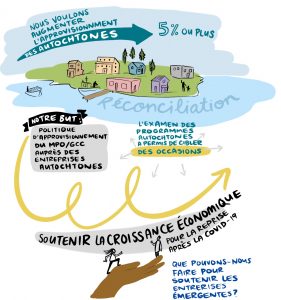 NOUS VOULONS
AUGMENTER
L'APPROVISIONNEMENT
DES AUTOCHTONES
5% OU PLUS
Réconciliation
NOTRE BUT:
POLITIQUE
D'APPROVISIONNEMENT
DU MPO/GCC
AUPRÈS DES
ENTREPRISES
AUTOCHTONES
L'EXAMEN DES
PROGRAMMES
AUTOCHTONES
A PERMIS DE CIBLER
DES OCCASIONS
SOUTENIR LA CROISSANCE ÉCONOMIQUE
POUR LA REPRISE
APRÈS LA COVID-19
QUE POUVONS-NOUS
FAIRE POUR
SOUTENIR LES
ENTREPRISES
ÉMERGENTES?